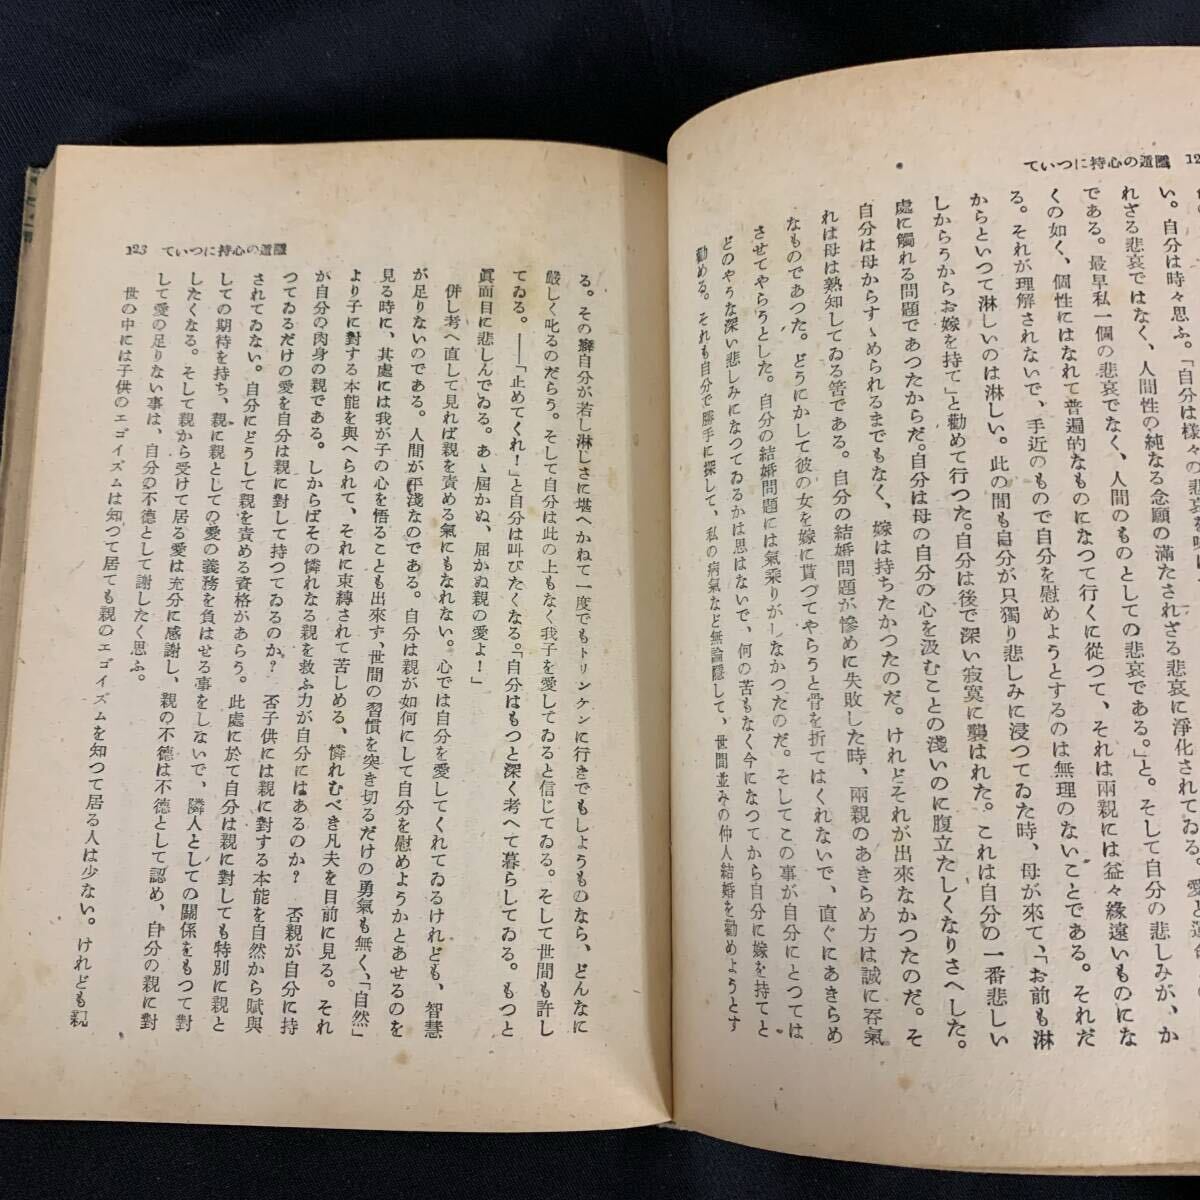 ていつに持心の道隱
い。自分は時々思ふ。「自分は様々の悲哀を
れざる悲哀ではなく、人間性の純なる念願の滿たされざる悲哀に淨化されてゐる。
である。最早私一個の悲哀でなく、人間のものとしての悲哀である。」と。そして自分の悲しみが、か
くの如く、個性にはなれて普遍的なものになつて行くに從つて、それは兩親には益々緣遠いものにな
る。それが理解されないで、手近のもので自分を慰めようとするのは無理のないことである。それだ
からといつて淋しいのは淋しい。此の間も自分が只獨り悲しみに浸つてゐた時、母が來て、「お前も淋
しからうからお嫁を持て」と勸めて行つた。自分は後で深い寂寞に襲はれた。これは自分の一番悲しい
處に觸れる問題であつたからだ。自分は母の自分の心を汲むことの淺いのに腹立たしくなりさへした。
自分は母からすゝめられるまでもなく、嫁は持ちたかつたのだ。けれどそれが出來なかつたのだ。そ
れは母は熟知してゐる筈である。自分の結婚問題が慘めに失敗した時、兩親のあきらめ方は誠に呑氣
なものであつた。どうにかして彼の女を嫁に貰つてやらうと骨を折てはくれないで、直ぐにあきらめ
させてやらうとした。自分の結婚問題には氣乘りがしなかつたのだ。そしてこの事が自分にとつては
どのやうな深い悲しみになつてゐるかは思はないで、何の苦もなく今になつてから自分に嫁を持てと
勸める。それも自分で勝手に探して、私の病氣など無論隱して、世間並みの仲人結婚を勸めようとす
123 ていつに持心の道隱
る。その癖自分が若し淋しさに堪へかねて一度でもトリンケンに行きでもしようものなら、どんなに
嚴しく叱るのだらう。そして自分は此の上もなく我子を愛してゐると信じてゐる。そして世間も許し
てゐる。――「止めてくれ！」と自分は叫びたくなる。「自分はもつと深く考へて暮らしてゐる。もつと
眞面目に悲しんでゐる。あゝ屆かぬ、屆かぬ親の愛よ！」
併し考へ直して見れば親を責める氣にもなれない。心では自分を愛してくれてゐるけれども、智慧
が足りないのである。人間が平淺なのである。自分は親が如何にして自分を慰めようかとあせるのを
見る時に、其處には我が子の心を悟ることも出來ず、世間の習慣を突き切るだけの勇氣も無く、「自然」
より子に對する本能を與へられて、それに束縛されて苦しめる、憐れむべき凡夫を目前に見る。それ
が自分の肉身の親である。しからばその憐れなる親を救ふ力が自分にはあるのか？　否親が自分に持
つてゐるだけの愛を自分は親に對して持つてゐるのか？　否子供には親に對する本能を自然から賦與
されてゐない。自分にどうして親を責める資格があらう。此處に於て自分は親に對しても特別に親と
しての期待を持ち、親に親としての愛の義務を負はせる事をしないで、隣人としての關係をもつて對
したくなる。そして親から受けて居る愛は充分に感謝し、親の不德は不德として認め、自分の親に對
して愛の足りない事は、自分の不德として謝したく思ふ。
世の中には子供のエゴイズムは知つて居ても親のエゴイズムを知つて居る人は少ない。けれども親